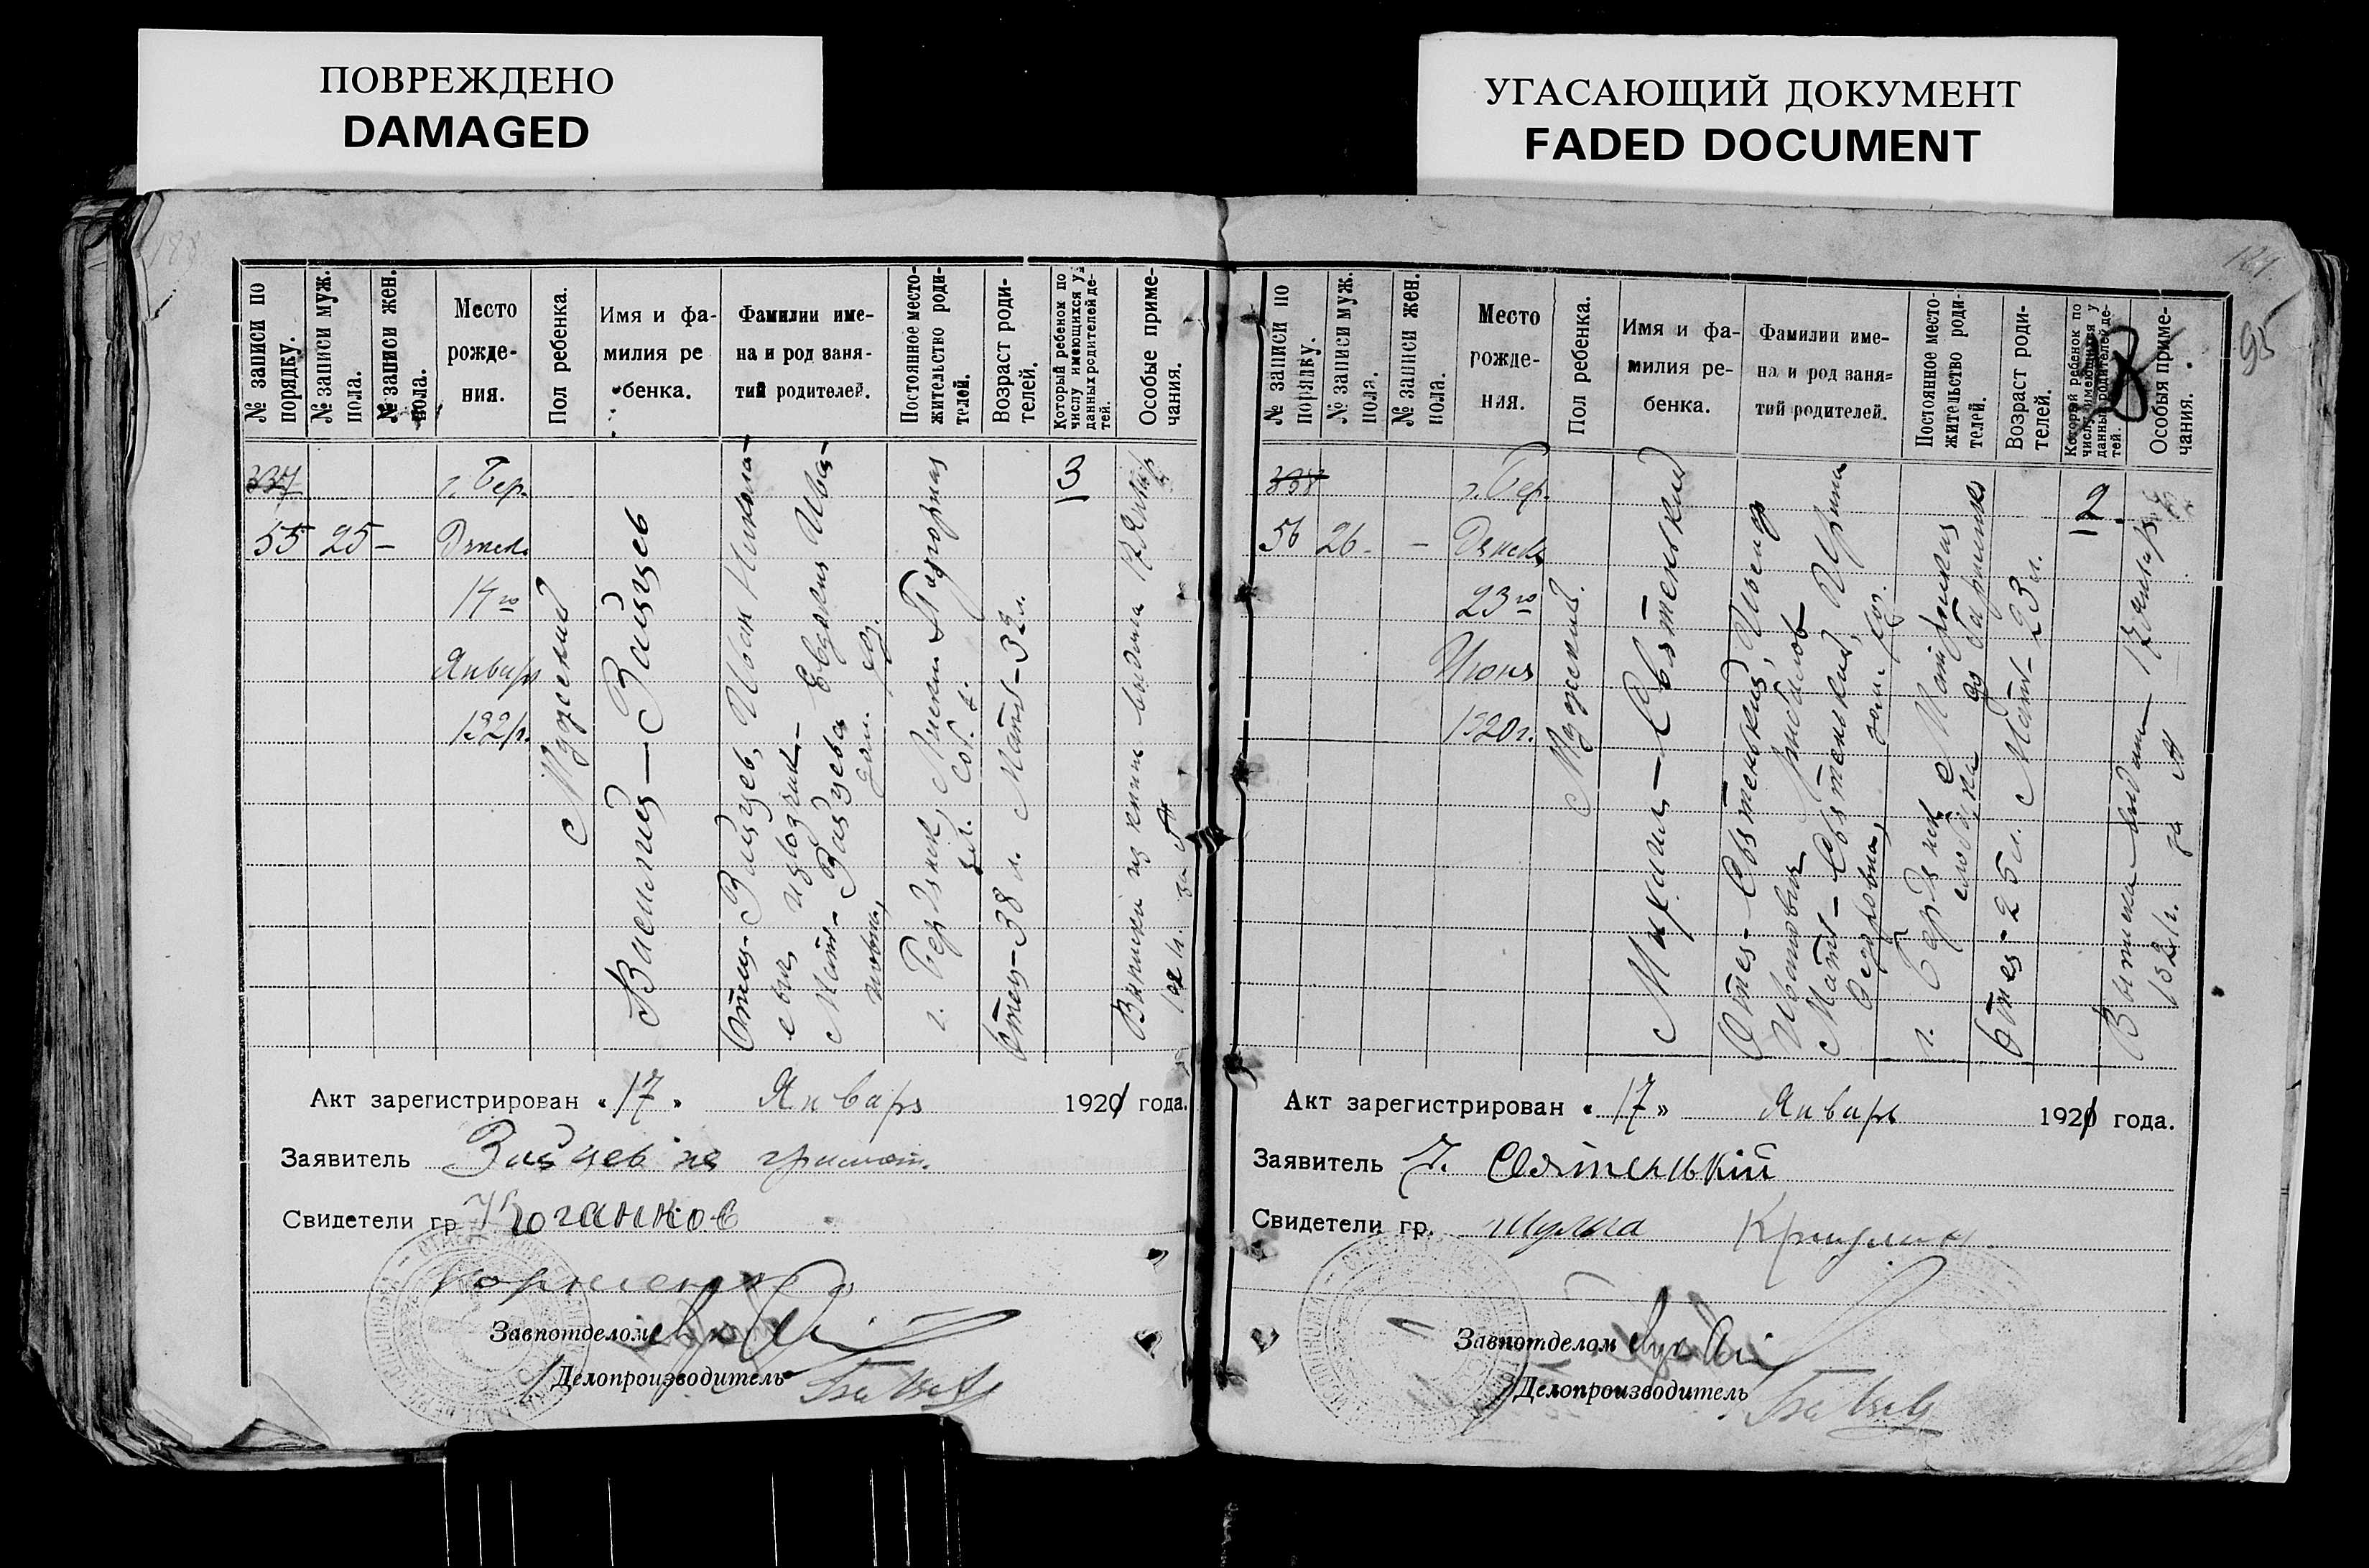 ПОВРЕЖДЕНО
DAMAGED
УГАСАЮЩИЙ ДОКУМЕНТ
FADED DOCUMENT
№ записи по порядку.
№ записи муж. пола.
№ записи жен. пола.
Место рожде-
ния.
Пол ребенка.
Имя и фа-
милия ре
бенка.
Фамилии име-
на и род заня-
тий родителей.
Постоянное место-
жительство роди-
телей.
Возраст роди-
телей.
Который ребенок по
числу имеющихся у
данных родителей де-
тей.
Особые приме-
чания.
337
55 25 –
г. Бер.
Дянск.
14го
Января
1921г.
Мужской
Василий – Зайцев
Отец – Зайцев, Иван Никола-
евич, извозчик –
Мать – Зайцева Евдокия Ива-
новна, дом. хоз.
г. Бердянск, Лиски Нагорная
Соб. д.
Отец – 38 л. Мать – 32 л.
3
Выписка из книги выдана 17 Января
1921г. за №
Акт зарегистрирован „17" Января 1921 года.
Заявитель Зайцев не грамот.
Свидетели гр.
Корниенко
Завпотделом
Делопроизводитель
95
№ записи по порядку.
№ записи муж. пола.
№ записи жен. пола.
Место рожде-
ния.
Пол ребенка.
Имя и фа-
милия ре-
бенка.
Фамилии име-
на и род заня-
тий родителей.
Постоянное место-
жительство роди-
телей.
Возраст роди-
телей.
Который ребенок по
числу имеющихся у
данных родителей де-
тей.
Особыя приме-
чания.
338
56 26 – –
г. Бер.
Дянск
23го
Июня
1920г.
Мужский.
Михаил – Святенький
Отец – Святенький,
Иванович
Мать – Святенькая, Ирина
Федоровна, дом. хоз.
г. Бердянск,
слободка
Отец – 25 л. Мать – 23 л.
2.
Выписка выдана 17 Января
1921г. за №
Акт зарегистрирован „17" Январь 1921 года.
Заявитель Святенький
Свидетели гр.
Завпотделом
Делопроизводитель